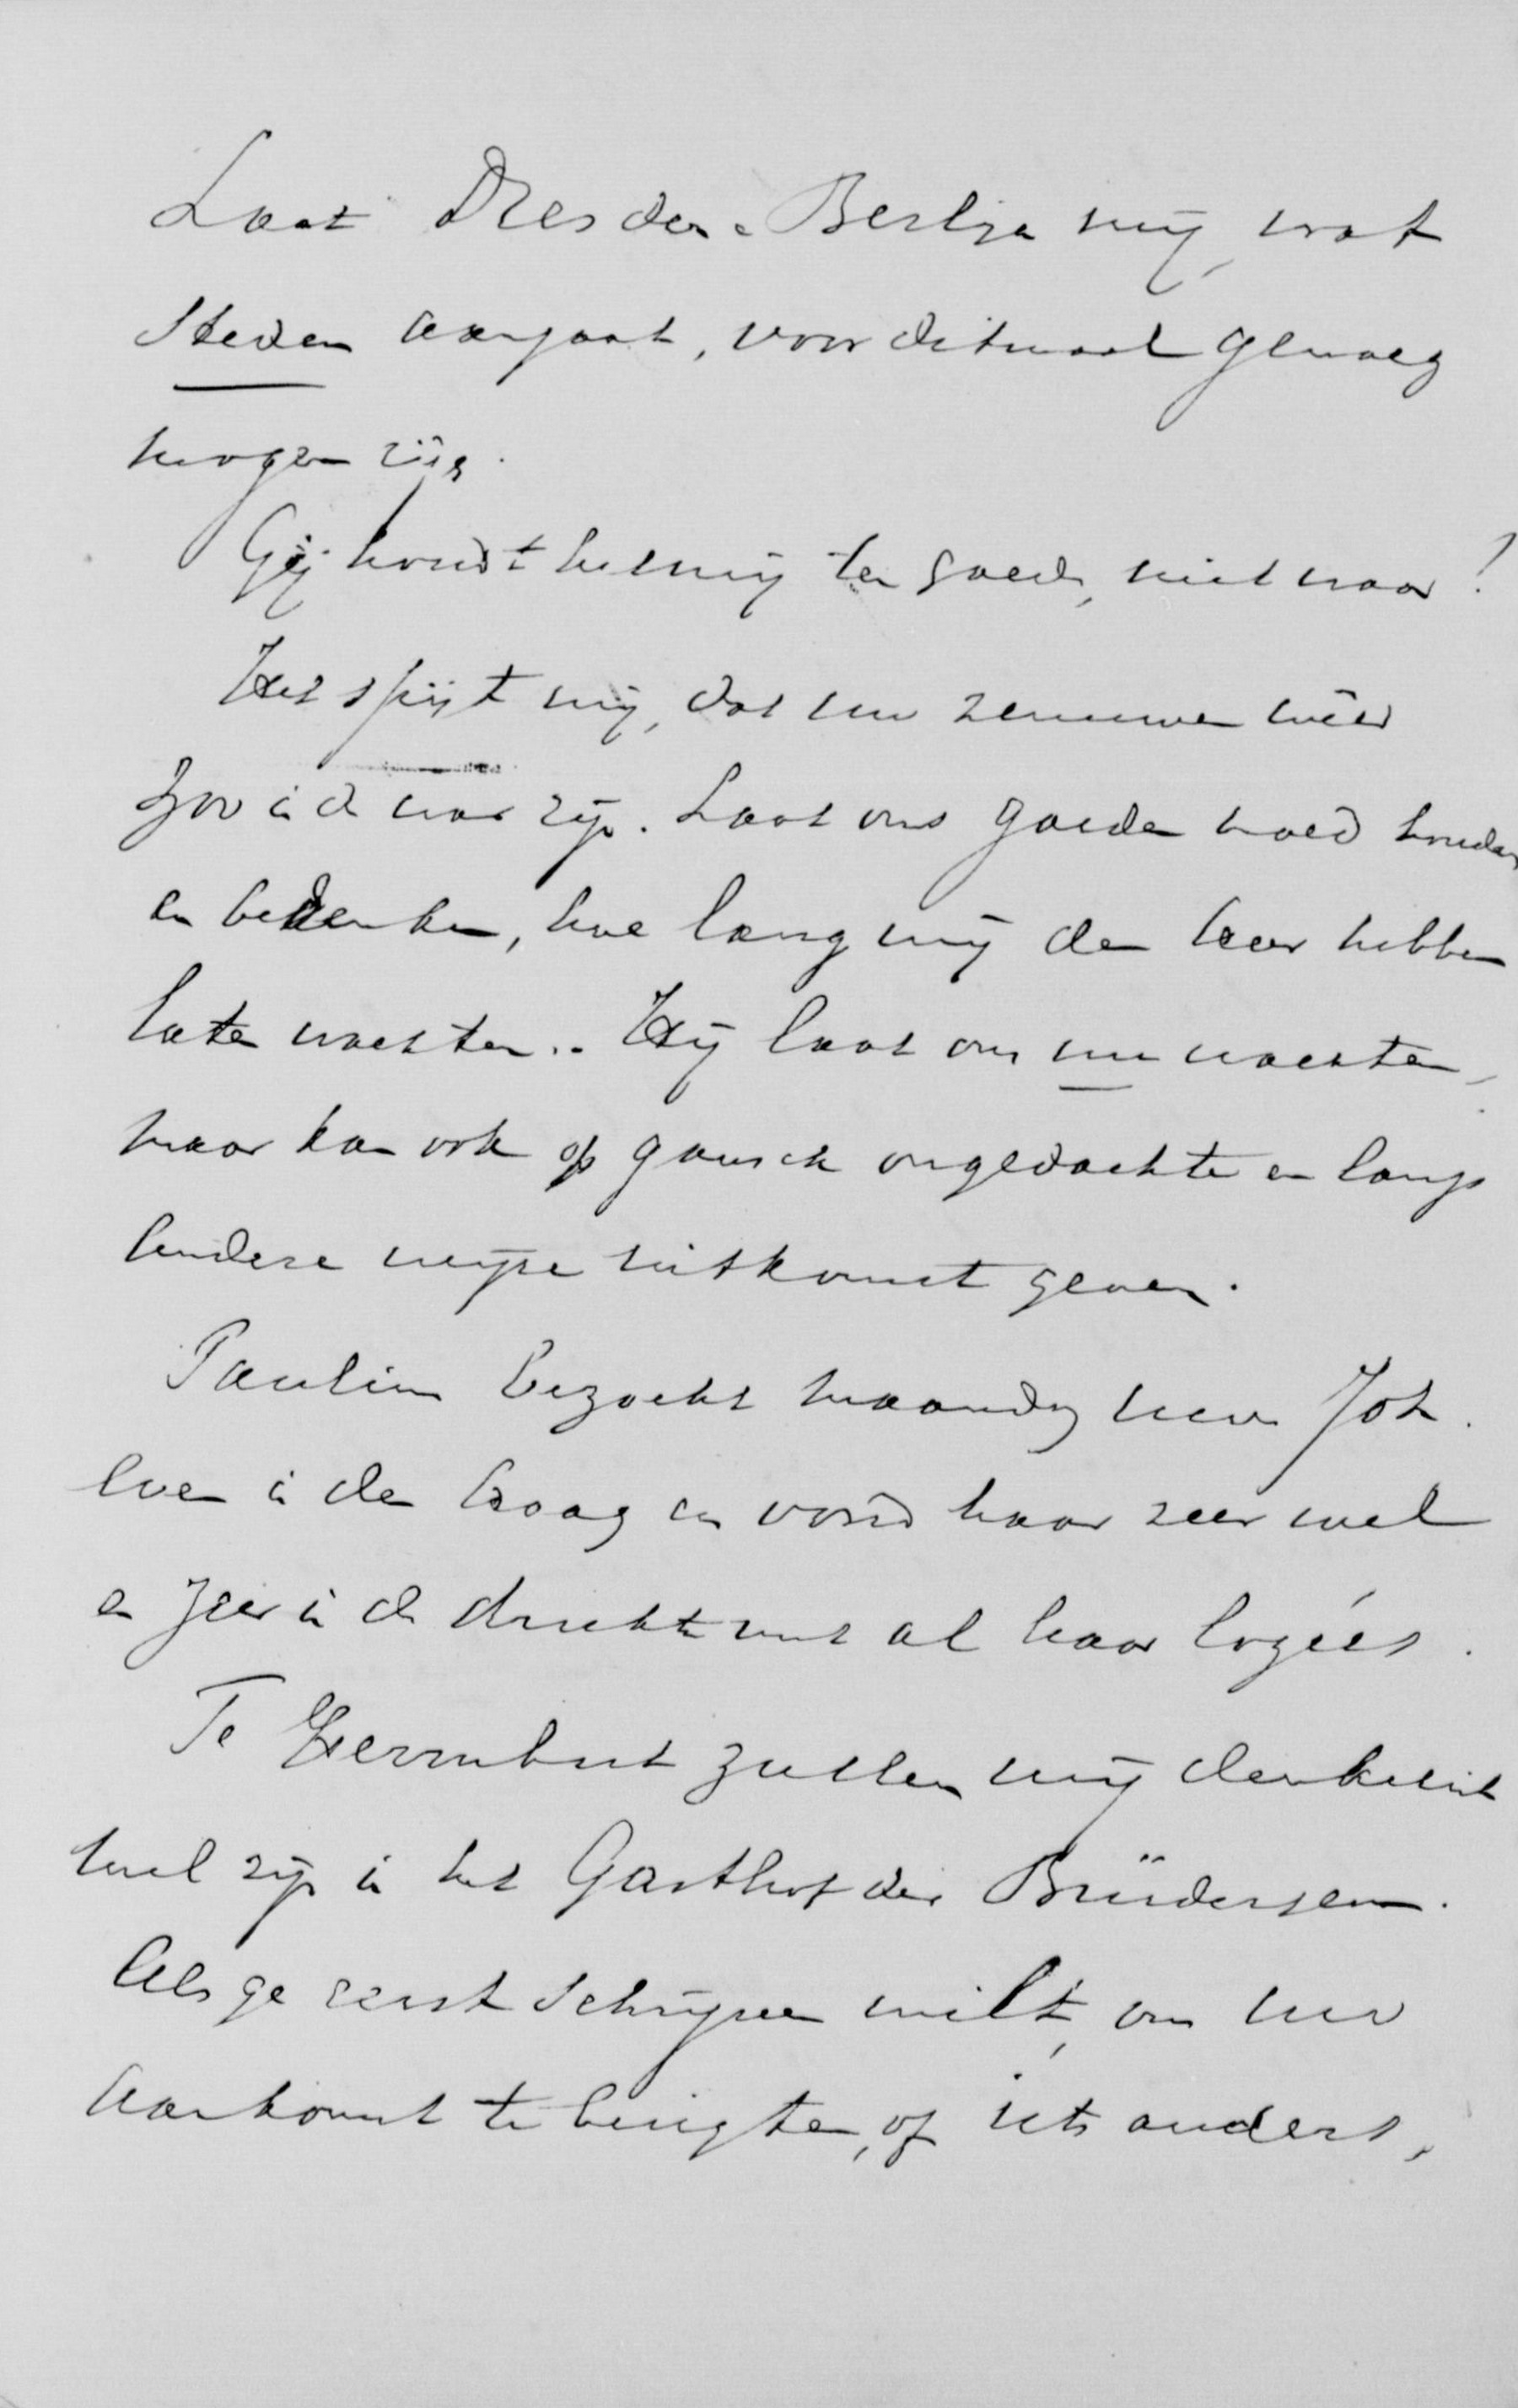 Laat Dresden & Berlijn mij, wat
steden aangaat, voor ditmaal genoeg
mogen zijn.
Gij houdt het mij ten goede, niet waar?
Het spijt mij, dat uw zenuwen wêer
zoo in de war zijn. Laat ons goeden moed houden
en bedenken, hoe lang wij den Heer hebben
laten wachten.. Hij laat ons nu wachten,
maar kan ook op gansch ongedachte en langs
andere wijze uitkomst geven.
Pauline bezocht maandag mevr Joh.
in den Haag en vond haar zeer wel
en zeer in de drukte met al haar logées.
Te Herrnhut zullen wij denkelijk
wel zijn in het Gasthof der Brüdergem.
Als ge eerst schrijven wilt, om uw
aankomst te berigten, of iets anders,